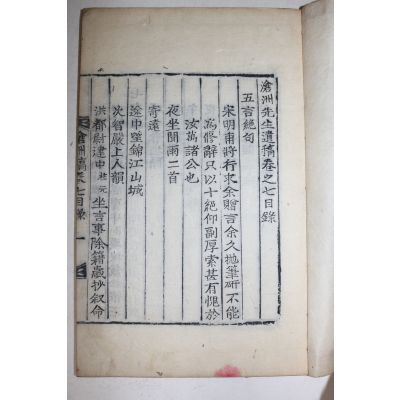 滄洲先生遺稿卷之七目錄
五言絶句
宋明甫將行求余贈言余久抛筆硏不能
爲修辭只以十絶仰副厚索甚有愧於
汝萬諸公也
夜坐聞雨二首
寄遠
送申肇錦江山城
次智嚴上人韻
洪都尉建中柱元坐言事除籍歲抄叙命
滄洲稿卷七目錄 一